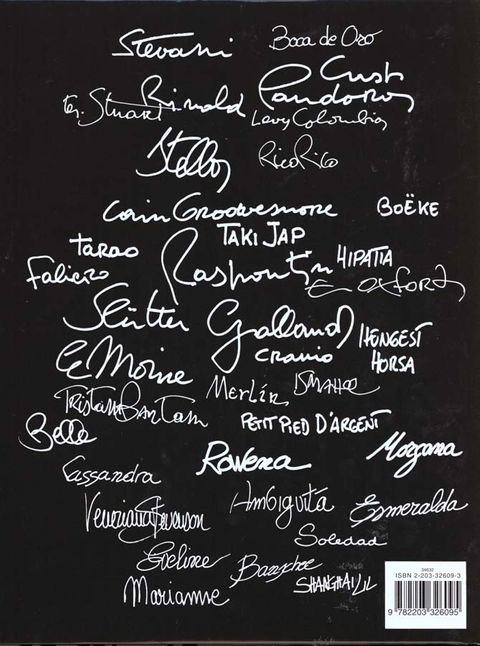 Stevani Boca de Oro
Cush
Ten. Stuart Rinald Pandora
Levy Colombia
Stella RicoRico
Cain Groovesnore BOËKE
TARAO TAKI JAP
Faliero Raspoutin HIPATIA
E Oxford
Slütter Galland HENGEST
CRANIO HORSA
El Moine
Merlin ISMAHEL
Tristan Bantam PETIT PIED D'ARGENT
Belle
Rowena Morgana
Cassandra
Veneziana Stevenson Ambiguità Esmeralda
Soledad
Eveline
Marianne SHANGHAI LIL
34632
ISBN 2-203-32609-3
9 782203 326095